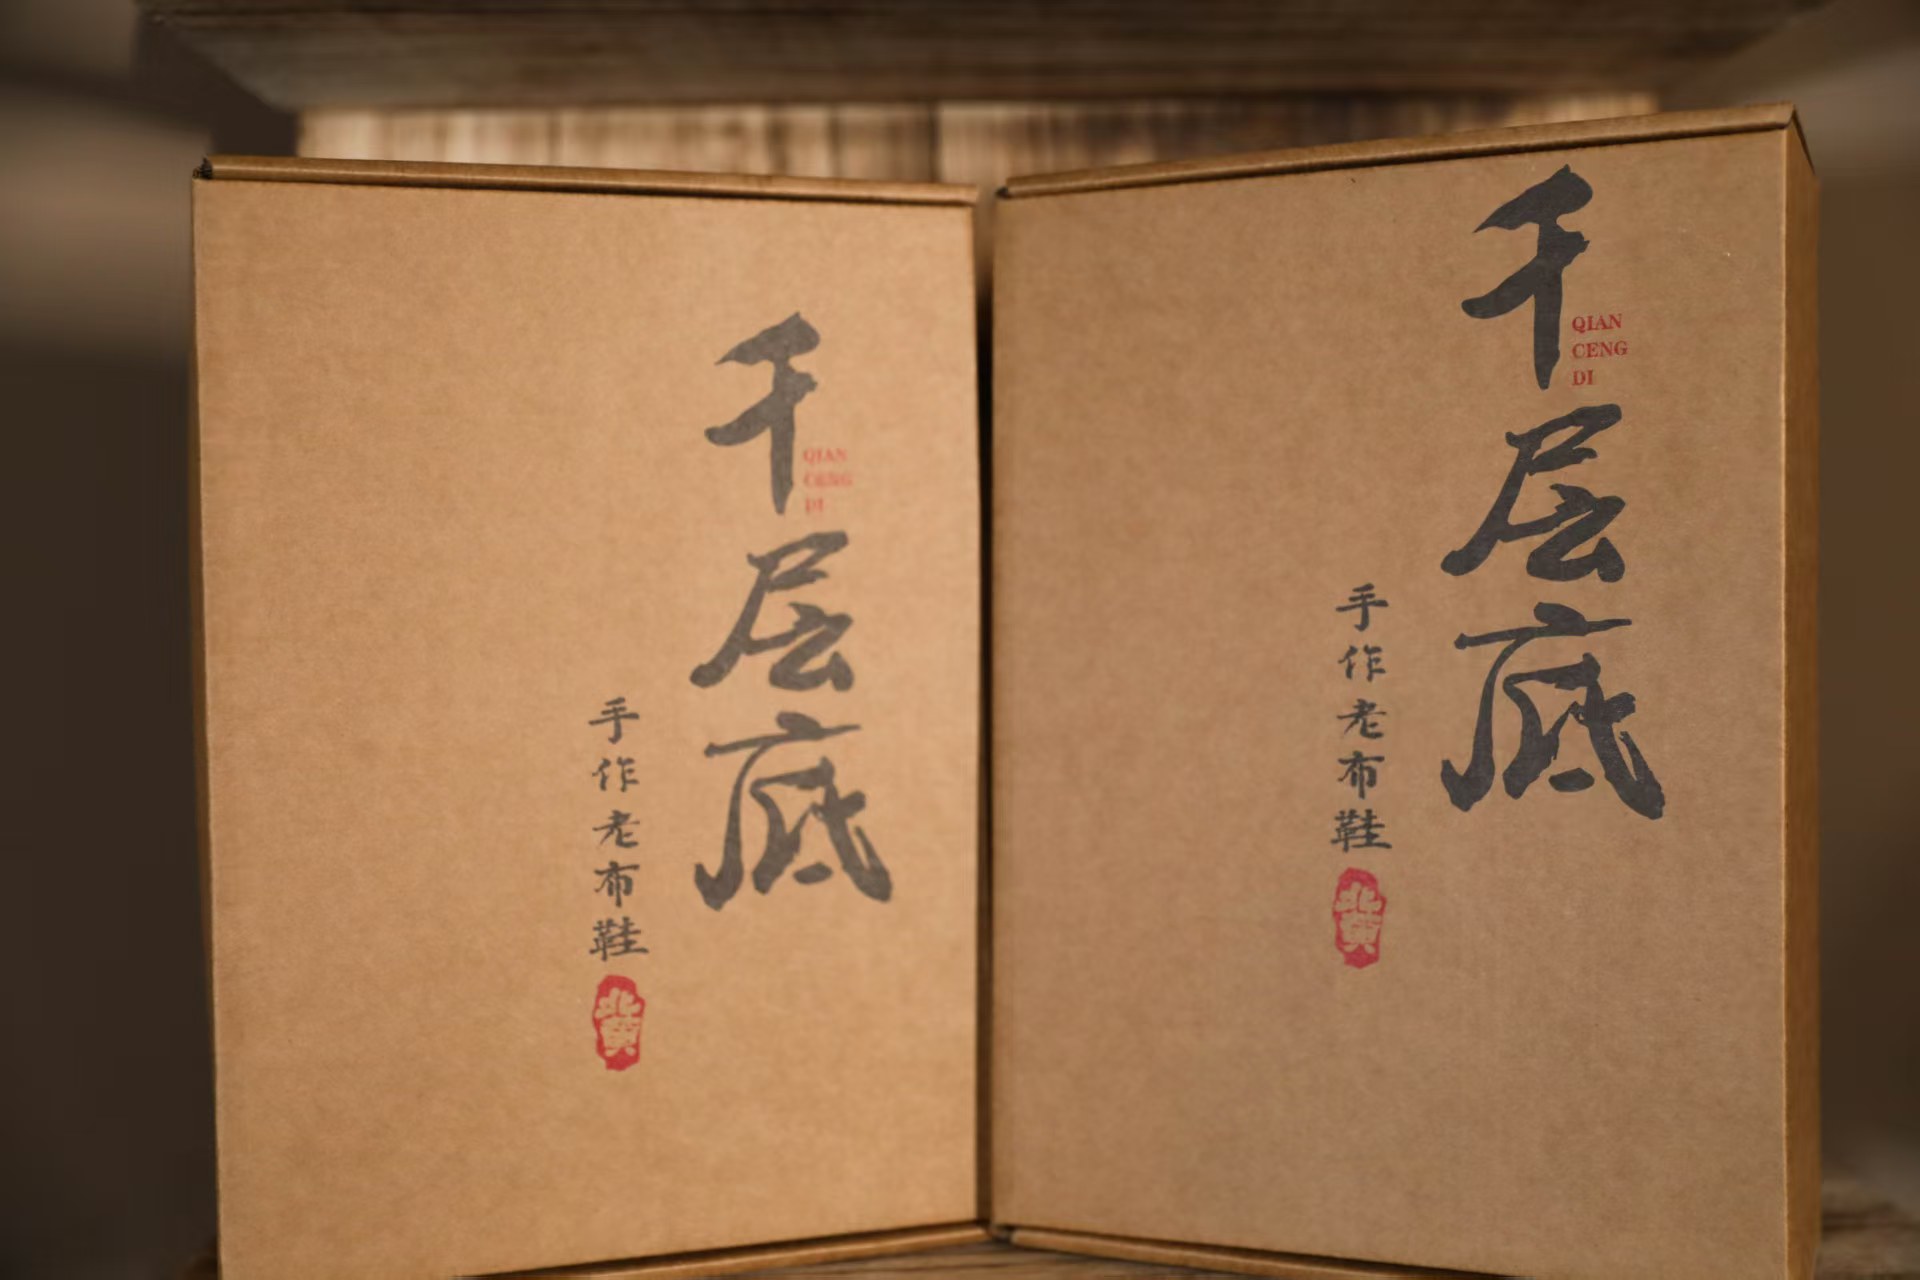 千层底
QIAN
CENG
DI
手作老布鞋
千层底
QIAN
CENG
DI
手作老布鞋